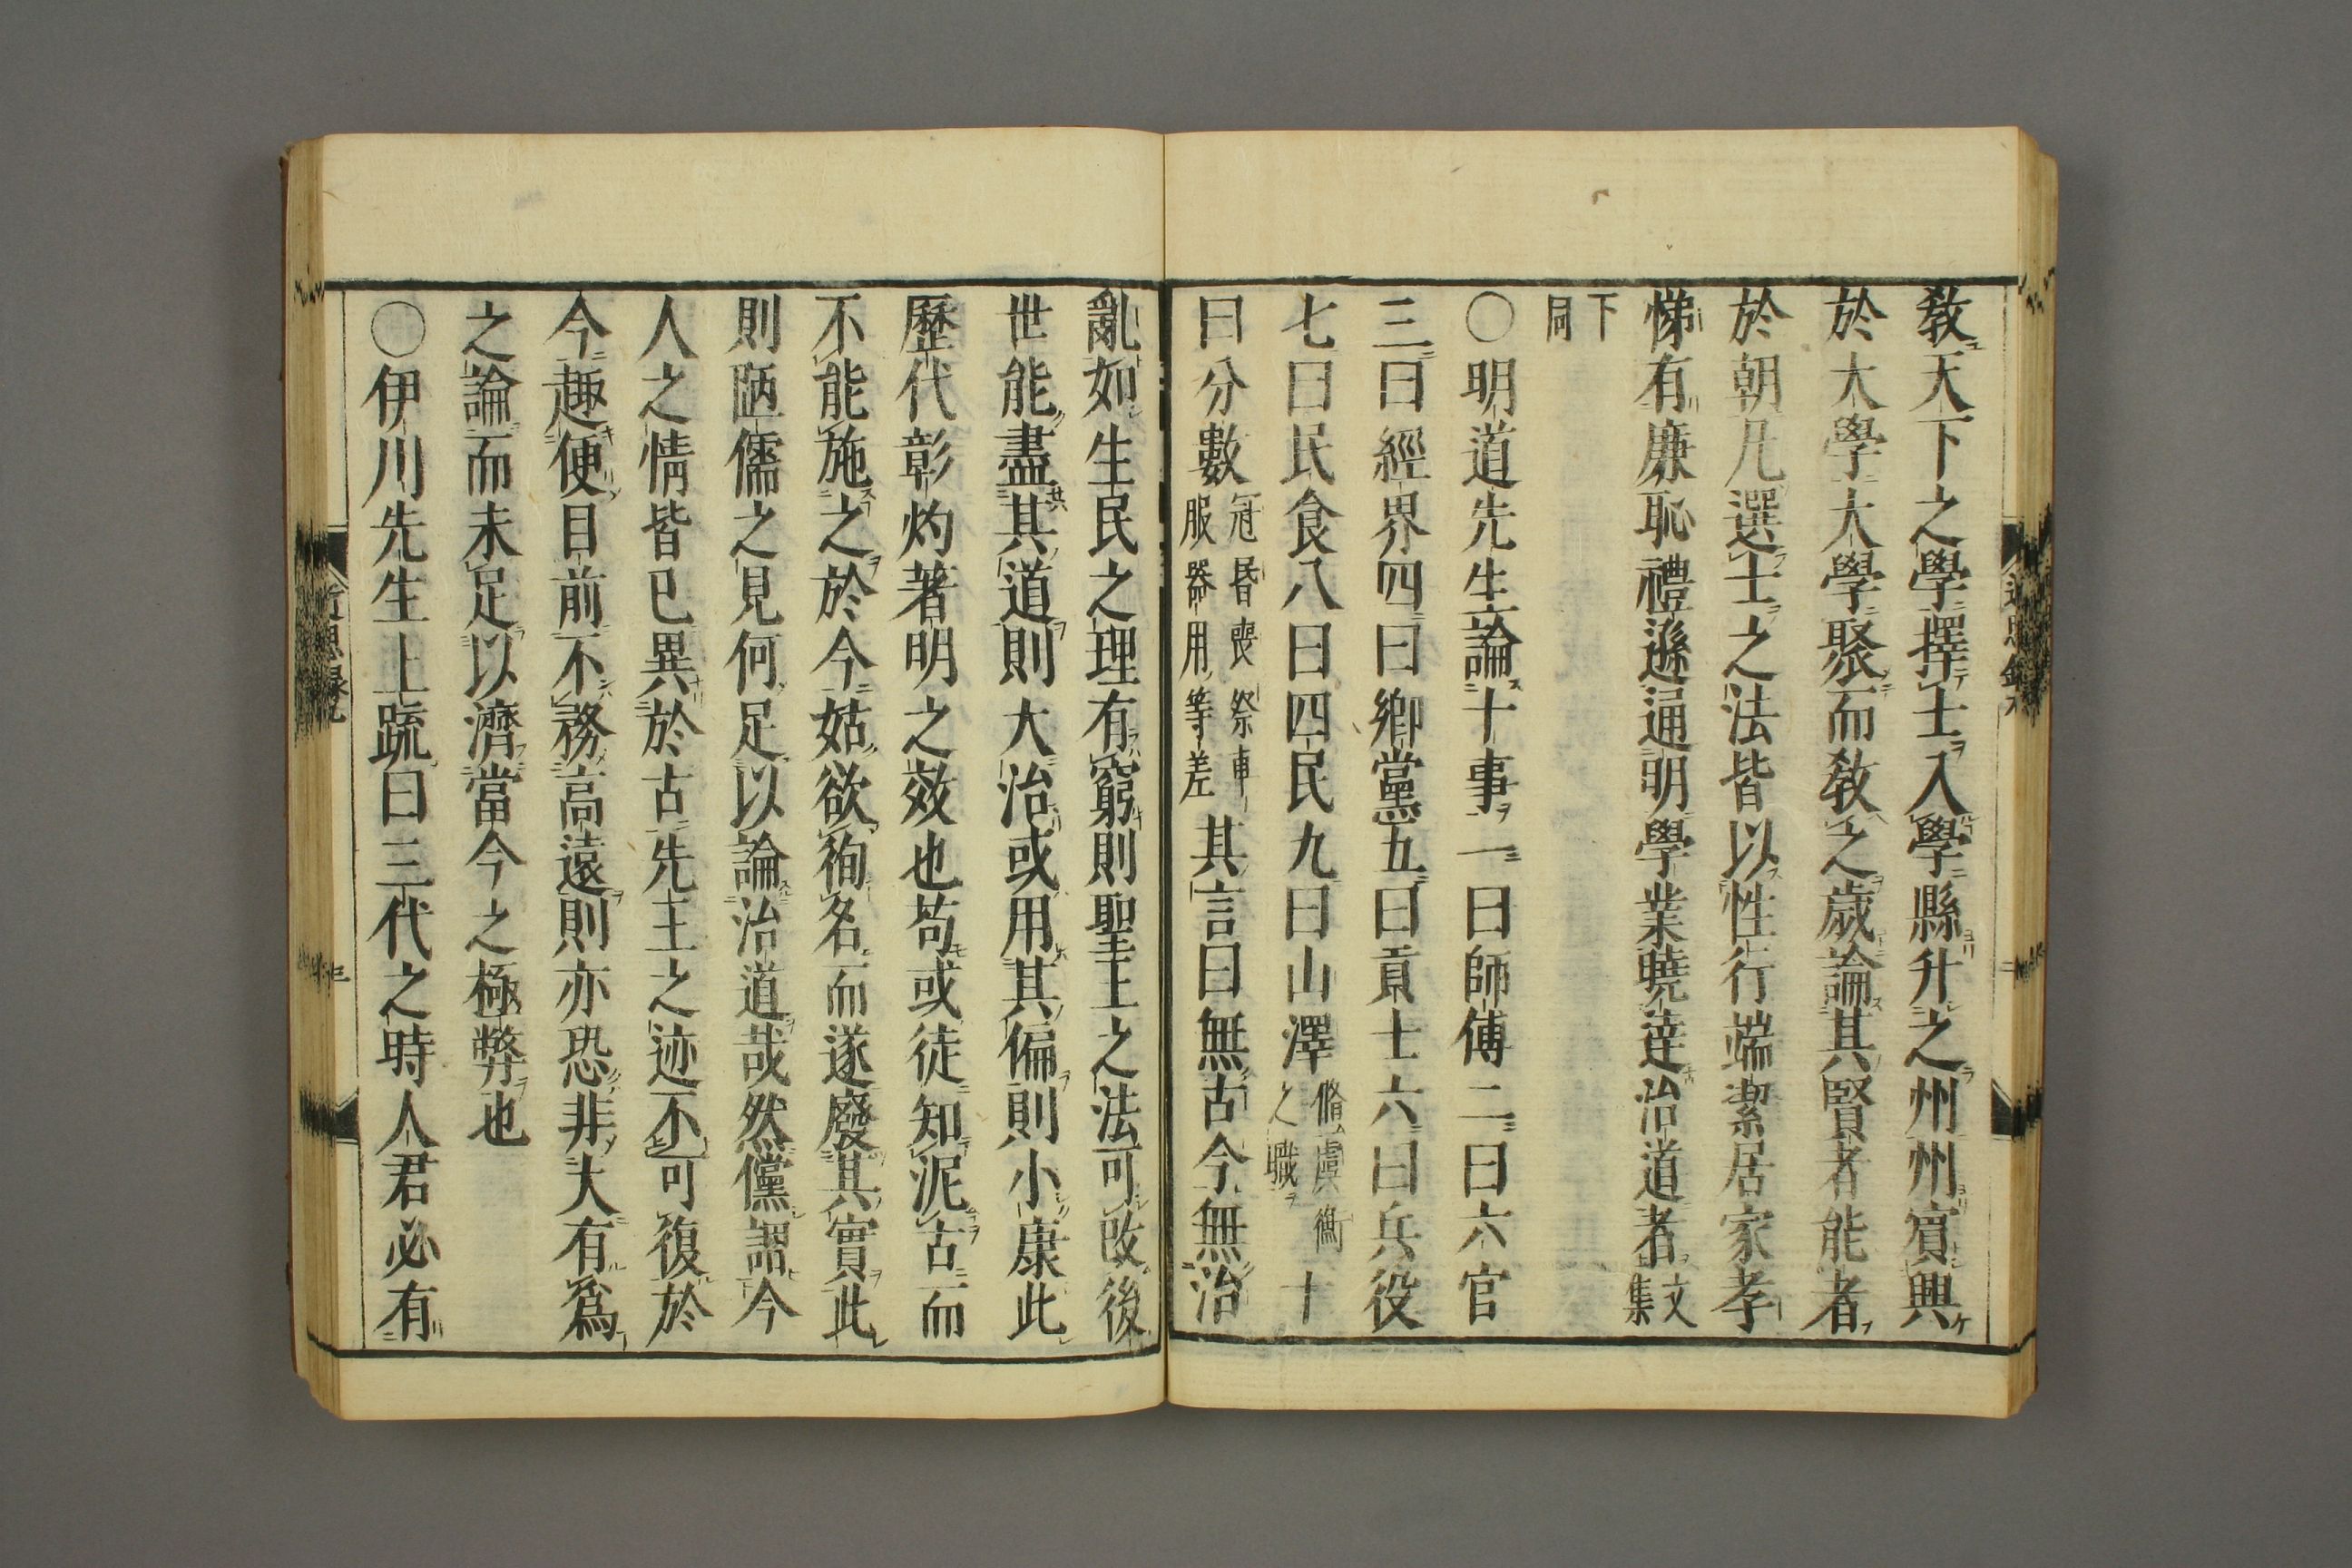 教天下之學擇士入學縣升之州州賓興
於大學大學聚而教之歲論其賢者能者
於朝凡選士之法皆以性行端潔居家孝
悌有廉恥禮遜通明學業曉達治道者文集
下同
〇明道先生論十事一曰師傅二曰六官
三曰經界四曰鄉黨五曰貢士六曰兵役
七曰民食八曰四民九曰山澤脩虞衡之職十
曰分數冠昏喪祭車服器用等差其言曰無古今無治
亂如生民之理有窮則聖王之法可改後
世能盡其道則大治或用其偏則小康此
歷代彰灼著明之效也苟或徒知泥古而
不能施之於今姑欲徇名而遂廢其實此
則陋儒之見何足以論治道哉然儻謂今
人之情皆已異於古先王之迹不可復於
今趣便目前不務高遠則亦恐非大有爲
之論而未足以濟當今之極弊也
〇伊川先生上疏曰三代之時人君必有